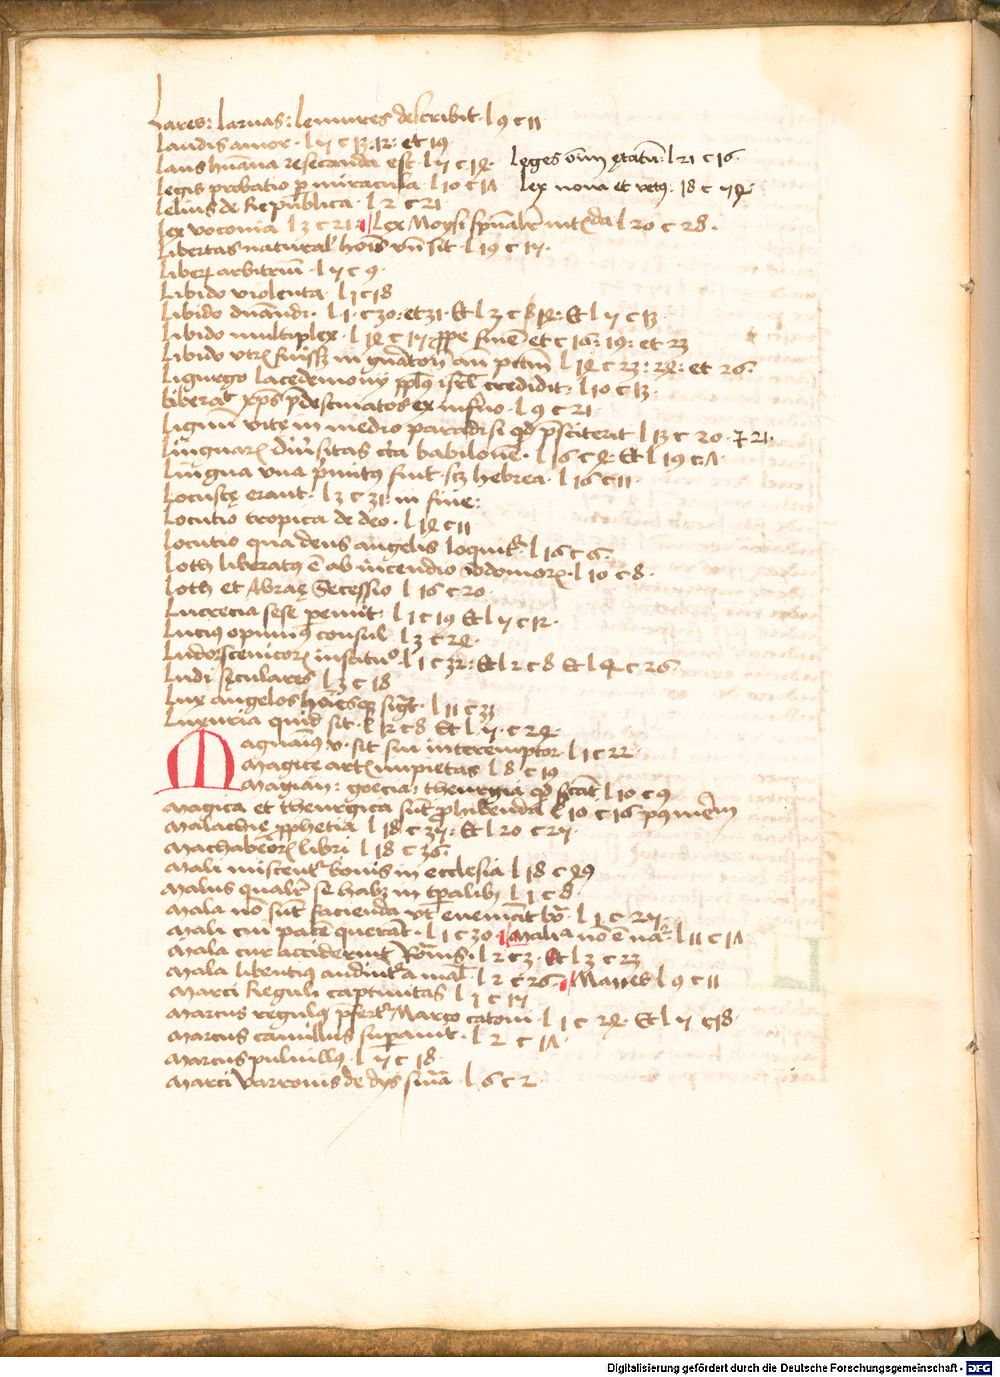 Lares: larvas: lemures describit· l 9 c 11
Laudis amor· l 5 c 13· 12· et 19
Laus hūana resecanda est· l 5 c 14· Leges oīm ętatū· l 21 c 16·
Legis probatio p miracula· l 10 c 17 Lex nova et vetus· 18 c 54·
Lelius de Republica· l 2 c 21
Lex voconia l 3 c 21· Lex Moysi spūalr intda l 20 c 28·
Libertas natural hoīs vn sit· l 19 c 15·
Liberū arbitriū· l 5 c 9·
Libido violenta· l 1 c 18
Libido dnandi· l 1· c 30· et 31· Et l 3 c 14· Et l 5 c 13·
Libido multiplex· l 14 c 15 prope finē et c 16: 19: et 23
Libido fuiss in an pctm l 14 c 23: 24: et 26·
Ligurgo lacedemonij ppls credidit: l 10 c 13·
liberat xps pdestinatos ex inferno· l 9 c 21·
Lignū vitę in medio paradisi qd psciterit l 13 c 20· et 21·
Linguarū diversitas cca babilonē· l 16 c 4· Et l 19 c· 7·
Lingua una primitus fuit· scz hebrea· l 16 c 11·
Locustę erant· l 3 c 31· in fine:
Locutio tropica de deo· l 14 c 11
Locutio qua deus angelis loquit· l 16 c 6·
Loth liberatus ē ab incendio sodomorū· l 10 c 8·
Loth et Abraę Secessio l 16 c 20·
Lucrecia sese pemit· l 1 c 19 Et l 5 c 12·
Lucius opimius consul l 3 c 24·
Ludorū scenicorū institutio· l 1 c 32: Et l 2 c 8 Et l 4 c 26·
Ludi sęculares l 3 c 18
Lux angelos hoīesq sigt· l 11 c 33
Luxuria quid sit· l 12 c 8 Et l 5· c 24·
Magnaīus v· sit sui interemptor· l 1 c 22·
Magicę artis impietas l 8 c 19
Magiam: goecia: theurgia qd l 10 c 9
Magica et theurgica sūt prohibenda l 10 c 16 post mediū
Malachię pphetia l 18 c 35: Et l 20 c 25·
Machabeorū libri l 18 c 36·
Mali miscent bonis in ecclesia l 18 c 49
Malus qualr se habz in tpalibus l 1 c 8
Mala nō sūt facienda ut eveniāt bo· l 1 c· 25·
Mali cui pacē querāt· l 1 c 30· Malia nō ē nar l 11 c 17
Mala cur acciderint Romis· l 2 c 3· Et l 3 c 23
Mala libentius audiūt a mal· l 2 c 26· Manes l 9 c 11
Marci Reguli captivitas l 1 c 15
Marcus regulus pfert Marco catoni· l 1 c 24· Et l 5 c 18·
Marcus camillus superavit· l 2 c 17·
Marcus pulvillus· l 5 c 18·
Marci Varronis de dijs sniā· l 6 c 2·
Digitalisierung gefördert durch die Deutsche Forschungsgemeinschaft - DFG